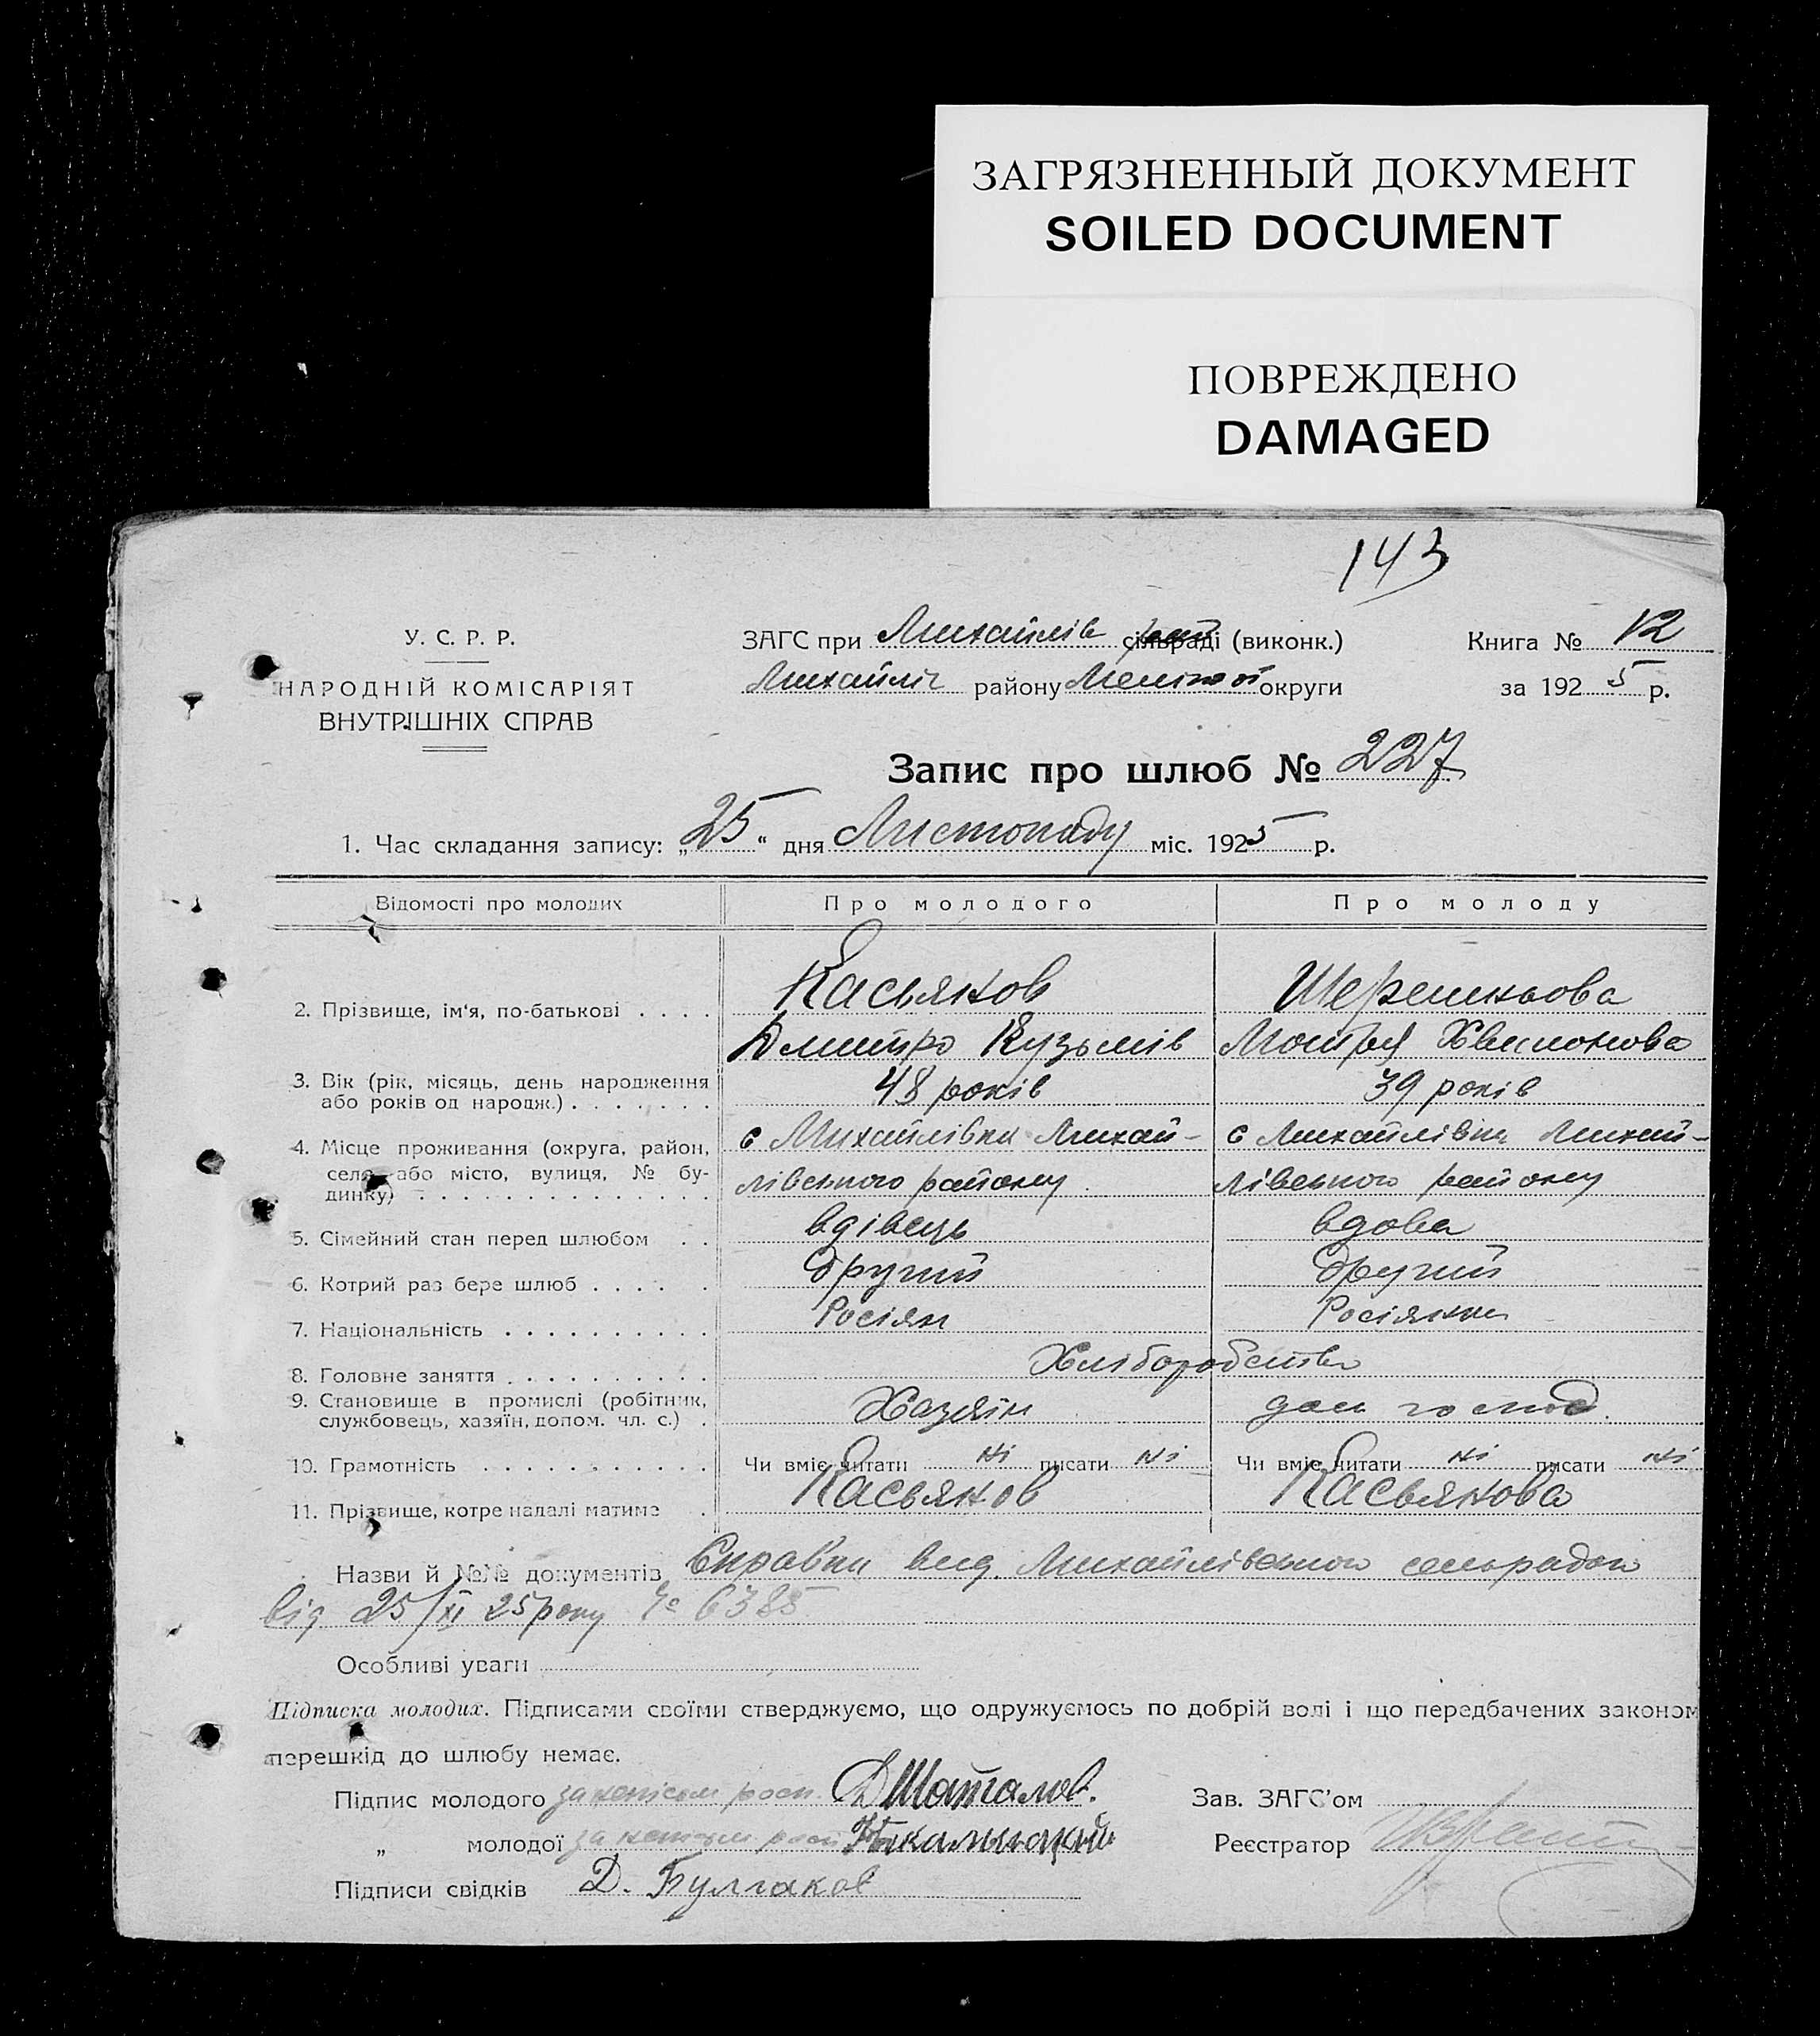 ЗАГРЯЗНЕННЫЙ ДОКУМЕНТ
SOILED DOCUMENT
ПОВРЕЖДЕНО
DAMAGED
143
У. С. Р. Р.
НАРОДНІЙ КОМІСАРІЯТ
ВНУТРІШНІХ СПРАВ
ЗАГС при Михайлів сільраді (виконк.)
району округи
Книга № 12
за 1925 р.
Запис про шлюб № 227
1. Час складання запису: „25“ дня Листопаду міс. 1925 р.
Відомості про молодих Про молодого Про молоду
2. Прізвище, ім'я, по-батькові . . . . Касьяков
Дмитро Кузьмів Мотря
3. Вік (рік, місяць, день народження або років од народж.) . . . . . . . 48 років 39 років
4. Місце проживання (округа, район, село або місто, вулиця, № будинку) . . . . . . . . . . . . . . с Михайлівки Михай- с Михайлівки Михай-
лівського району лівського району
5. Сімейний стан перед шлюбом . . вдівець вдова
6. Котрий раз бере шлюб . . . . . другий другий
7. Національність . . . . . . . . . . Росіян Росіянка
8. Головне заняття . . . . . . . . . . Хліборобство
9. Становище в промислі (робітник, службовець, хазяїн, допом. чл. с.) . Хазяїн господ.
10. Грамотність . . . . . . . . . . . Чи вміє читати ні писати ні Чи вміє читати ні писати ні
11. Прізвище, котре надалі матиме . Касьяков Касьякова
Назви й №№ документів Справки вид. Михайлівською сельрадою
від 25/XI 25 року № 6385
Особливі уваги
Підписка молодих. Підписами своїми стверджуємо, що одружуємось по добрій волі і що передбачених законом
перешкід до шлюбу немає.
Підпис молодого за непісьм росп. ДШаталов.
„ молодої за непісьм росп
Підписи свідків Д. Булгаков
Зав. ЗАГС'ом
Реєстратор